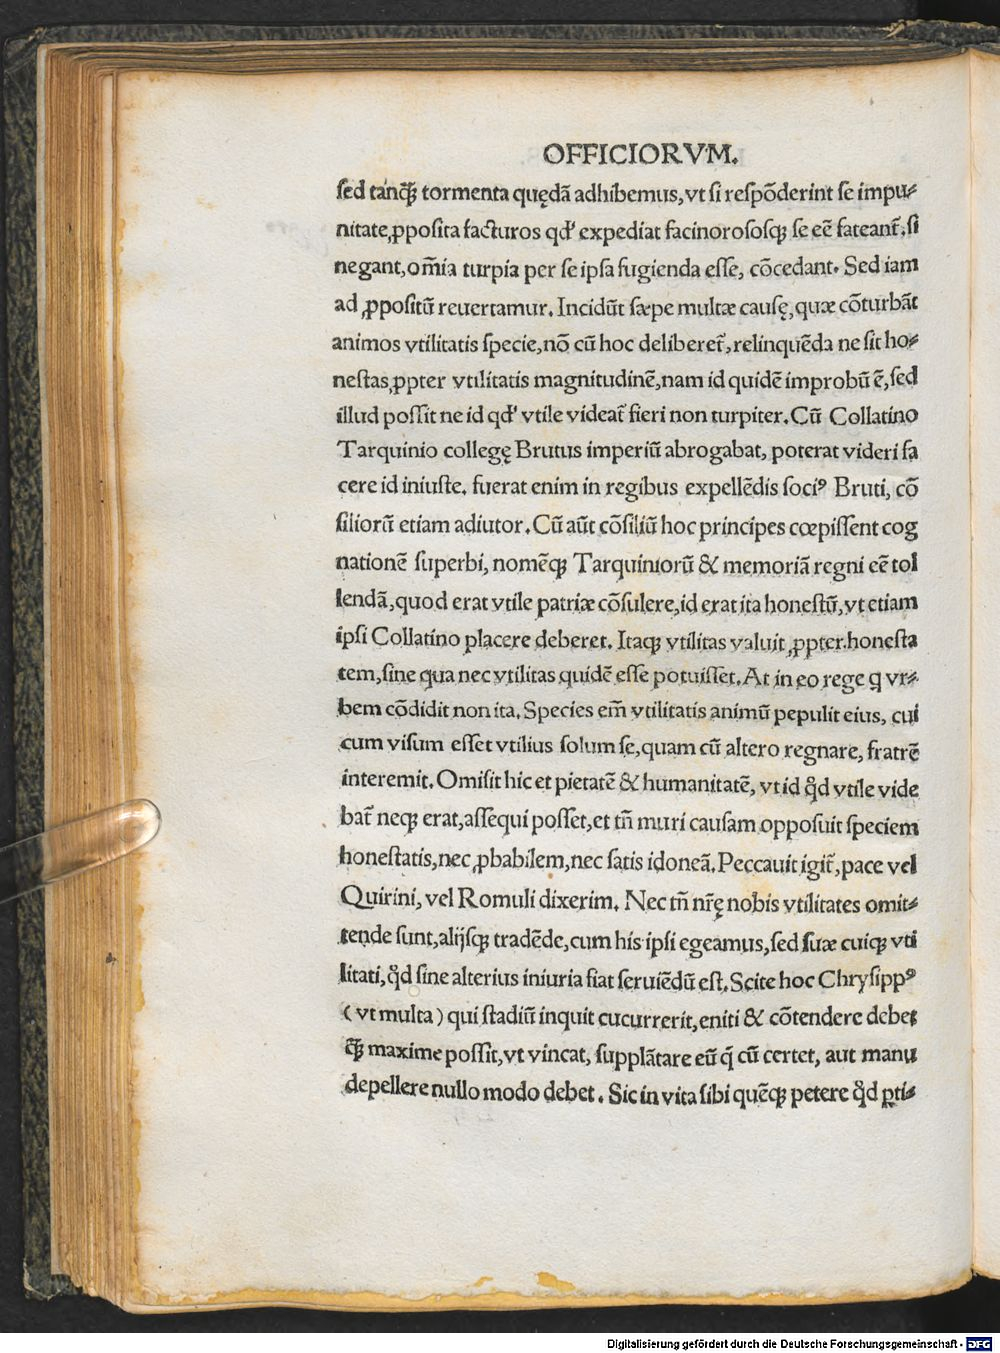 OFFICIORVM.
sed tanꝙ̃ tormenta quędã adhibemus, vt si respõderint se impu⸗
nitate, ꝓposita facturos qd' expediat facinorososq; se eẽ fateant̃. si
negant, om̃ia turpia per se ipsa fugienda esse, cõcedant. Sed iam
ad ꝓpositũ reuertamur. Incidũt sæpe multæ causę, quæ cõturbãt
animos vtilitatis specie, nõ cũ hoc deliberet̃, relinquẽda ne sit ho⸗
nestas, ꝓpter vtilitatis magnitudinẽ, nam id quidẽ improbũ ẽ, sed
illud possit ne id qd' vtile videat̃ fieri non turpiter. Cũ Collatino
Tarquinio collegę Brutus imperiũ abrogabat, poterat videri fa
cere id iniuste. fuerat enim in regibus expellẽdis sociꝰ Bruti, cõ
siliorũ etiam adiutor. Cũ aũt cõsiliũ hoc principes cœpissent cog
nationẽ superbi, nomẽq; Tarquiniorũ & memoriã regni eẽ tol
lendã, quod erat vtile patriæ cõsulere, id erat ita honestũ, vt etiam
ipsi Collatino placere deberet. Itaq; vtilitas valuit ꝓpter. honesta
tem, sine qua nec vtilitas quidẽ esse potuisset. At in eo rege q vr⸗
bem cõdidit non ita. Species em̃ vtilitatis animũ pepulit eius, cui
cum visum esset vtilius solum se, quam cũ altero regnare, fratrẽ
interemit. Omisit hic et pietatẽ & humanitatẽ, vt id qͥd vtile vide
bat̃ neq; erat, assequi posset, et tñ muri causam opposuit speciem
honestatis, nec ꝓbabilem, nec satis idoneã. Peccauit igit̃, pace vel
Quirini, vel Romuli dixerim. Nec tñ nr̃ę nobis vtilitates omit⸗
tende sunt, alijsq; tradẽde, cum his ipsi egeamus, sed suæ cuiq; vti
litati, qͥd sine alterius iniuria fiat seruiẽdũ est. Scite hoc Chrysippꝰ
( vt multa ) qui stadiũ inquit cucurrerit, eniti & cõtendere debet
ꝙ̃ maxime possit, vt vincat, supplãtare eũ q̃ cũ certet, aut manu
depellere nullo modo debet . Sic in vita sibi quẽq; petere qͥd ꝑti⸗
Digitalisierung gefördert durch die Deutsche Forschungsgemeinschaft - DFG